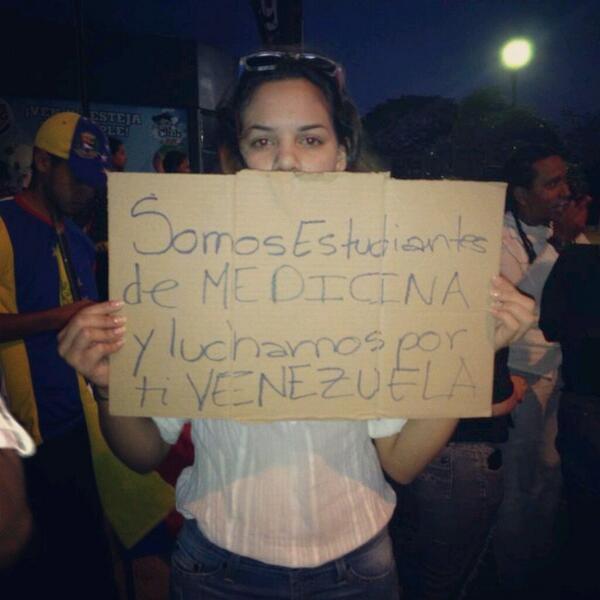 Somos Estudiantes
de MEDICINA
y luchamos por
ti VENEZUELA